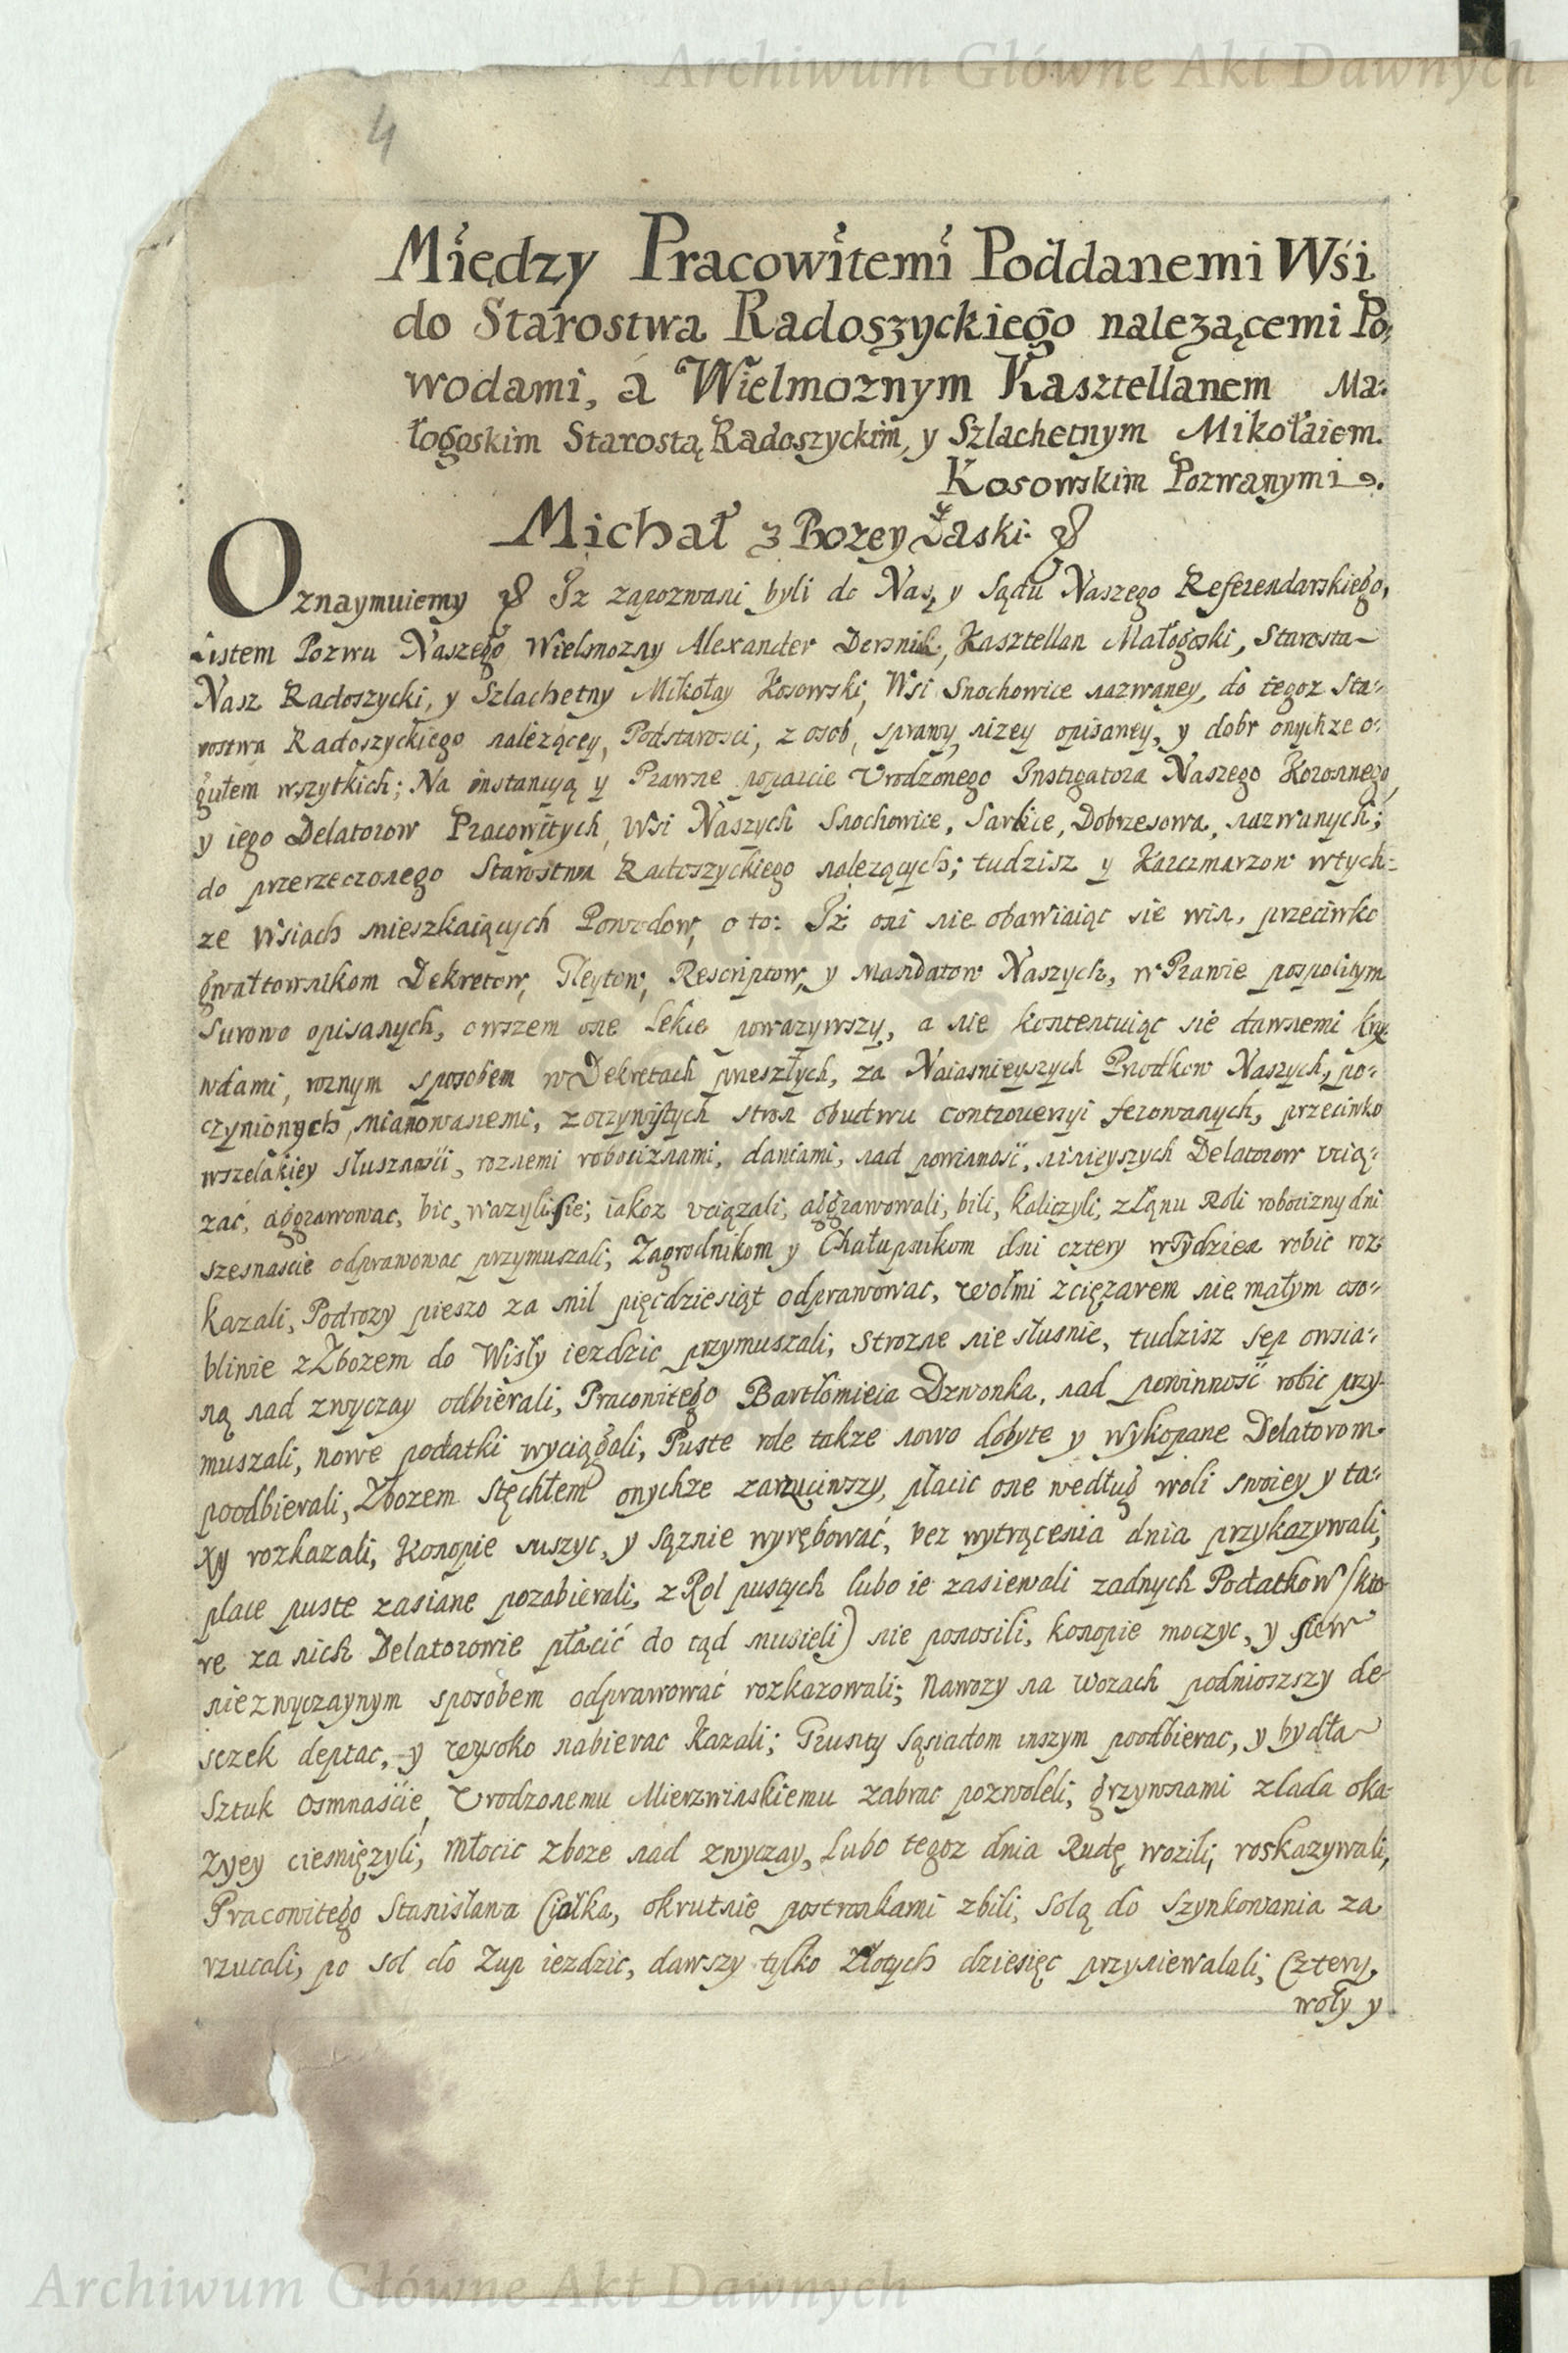 Archiwum Główne Akt Dawnych
4
Między Pracowitemi Poddanemi Wśi
do Starostwa Radoszyckiego nalezącemi Po=
wodami, á Wielmoznym Kasztellanem Ma=
łogoskim Starostą Radoszyckim, y Szlachetnym Mikołaiem
Kosowskim Pozwanymi.
Michał z Bozey Łaski. &
Oznaymuiemy & Iz zapozwani byli do Nas, y Sądu Naszego Referendarskiego,
Listem Pozwu Naszego Wielmozny Alexander Kasztellan Małogoski, Starosta
Nasz Radoszycki, y Szlachetny Mikołay Kosowski, Wsi Snochowice nazwaney, do tegoz Sta=
rostwa Radoszyckiego nalezącey, Podstarosci, z osob, sprawy, nizey opisaney, y dobr onychze o=
gułem wszytkich; Na instancyą y Prawne poparcie Vrodzonego Instigatora Naszego Koronnego,
y iego Delatorow Pracowitych, Wsi Naszych Snochowice, Sarbice, Dobrzesowa, nazwanych;
do przerzeczonego Starostwa Radoszyckiego nalezących; tudzisz y Karczmarzow wtych=
ze Wsiach mieszkaiących Powodow, o to: Iż oni nie obawiaiąc sie win, przeciwko
gwałtownikom Dekretow, Gleytow, Rescriptow, y Mandatow Naszych, w Prawie pospolitym
surowo opisanych, owszem one lekce powazywszy, a nie kontentuiąc sie dawnemi krzy=
wdami, roznym sposobem w Dekretach przeszłych, za Naiasnieyszych Przodkow Naszych, po=
czynionych, mianowanemi, z oczywistych stron obudwu controversyi ferowanych, przeciwko
wszelakiey słusznosći, roznemi robociznami, daniami, nad powinnosć, ninieyszych Delatorow vcią=
zać, aggrawowac, bic, wazyli sie; iakoz vciązali, aggrawowali, bili, kaliczyli, z Łanu Roli robocizny dni
szesnascie odprawowac przymuszali; Zagrodnikom y Chałupnikom dni cztery w Tydzien robic roz=
kazali, Podrozy pieszo za mil pięcdziesiąt odprawowac, Wołmi z cięzarem nie małym oso=
bliwie z Zbozem do Wisły iezdzic przymuszali, Strozne nie słusnie, tudzisz sep owsia=
ną nad zwyczay odbierali, Pracowitego Bartłomieia Dzwonka, nad powinnosć robic przy=
muszali, nowe podatki wyciągali, Puste role takze nowo dobyte y wykopane Delatorom
poodbierali, Zbozem stęchłem onychze zarzuciwszy, płacic one według woli swoiey y ta=
xy rozkazali, Konopie suszyc, y Sąznie wyrębować, bez wytrącenia dnia przykazywali,
place puste zasiane pozabierali, z Rol pustych lubo ie zasiewali zadnych Podatkow (kto=
re za nich Delatorowie płacić do tąd musieli) nie ponosili, konopie moczyc, y
niezwyczaynym sposobem odprawować rozkazowali; Nawozy na Wozach podnioszszy de=
sczek deptac, y wysoko nabierac Kazali; Grunty Sąsiadom inszym poodbierac, y bydła
Sztuk Osmnaście Vrodzonemu Mierzwinskiemu zabrac pozwoleli, grzywnami zlada oka=
zyey ciesnięzyli, Młocic zboze nad zwyczay, Lubo tegoz dnia Rudę wozili, roskazywali,
Pracowitego Stanisława Ciołka, okrutnie postronkami zbili, Solą do Szynkowania za
rzucali, po sol do Zup iezdzic, dawszy tylko Złotych dziesięc przyniewalali, Cztery
woły y
Archiwum Główne Akt Dawnych